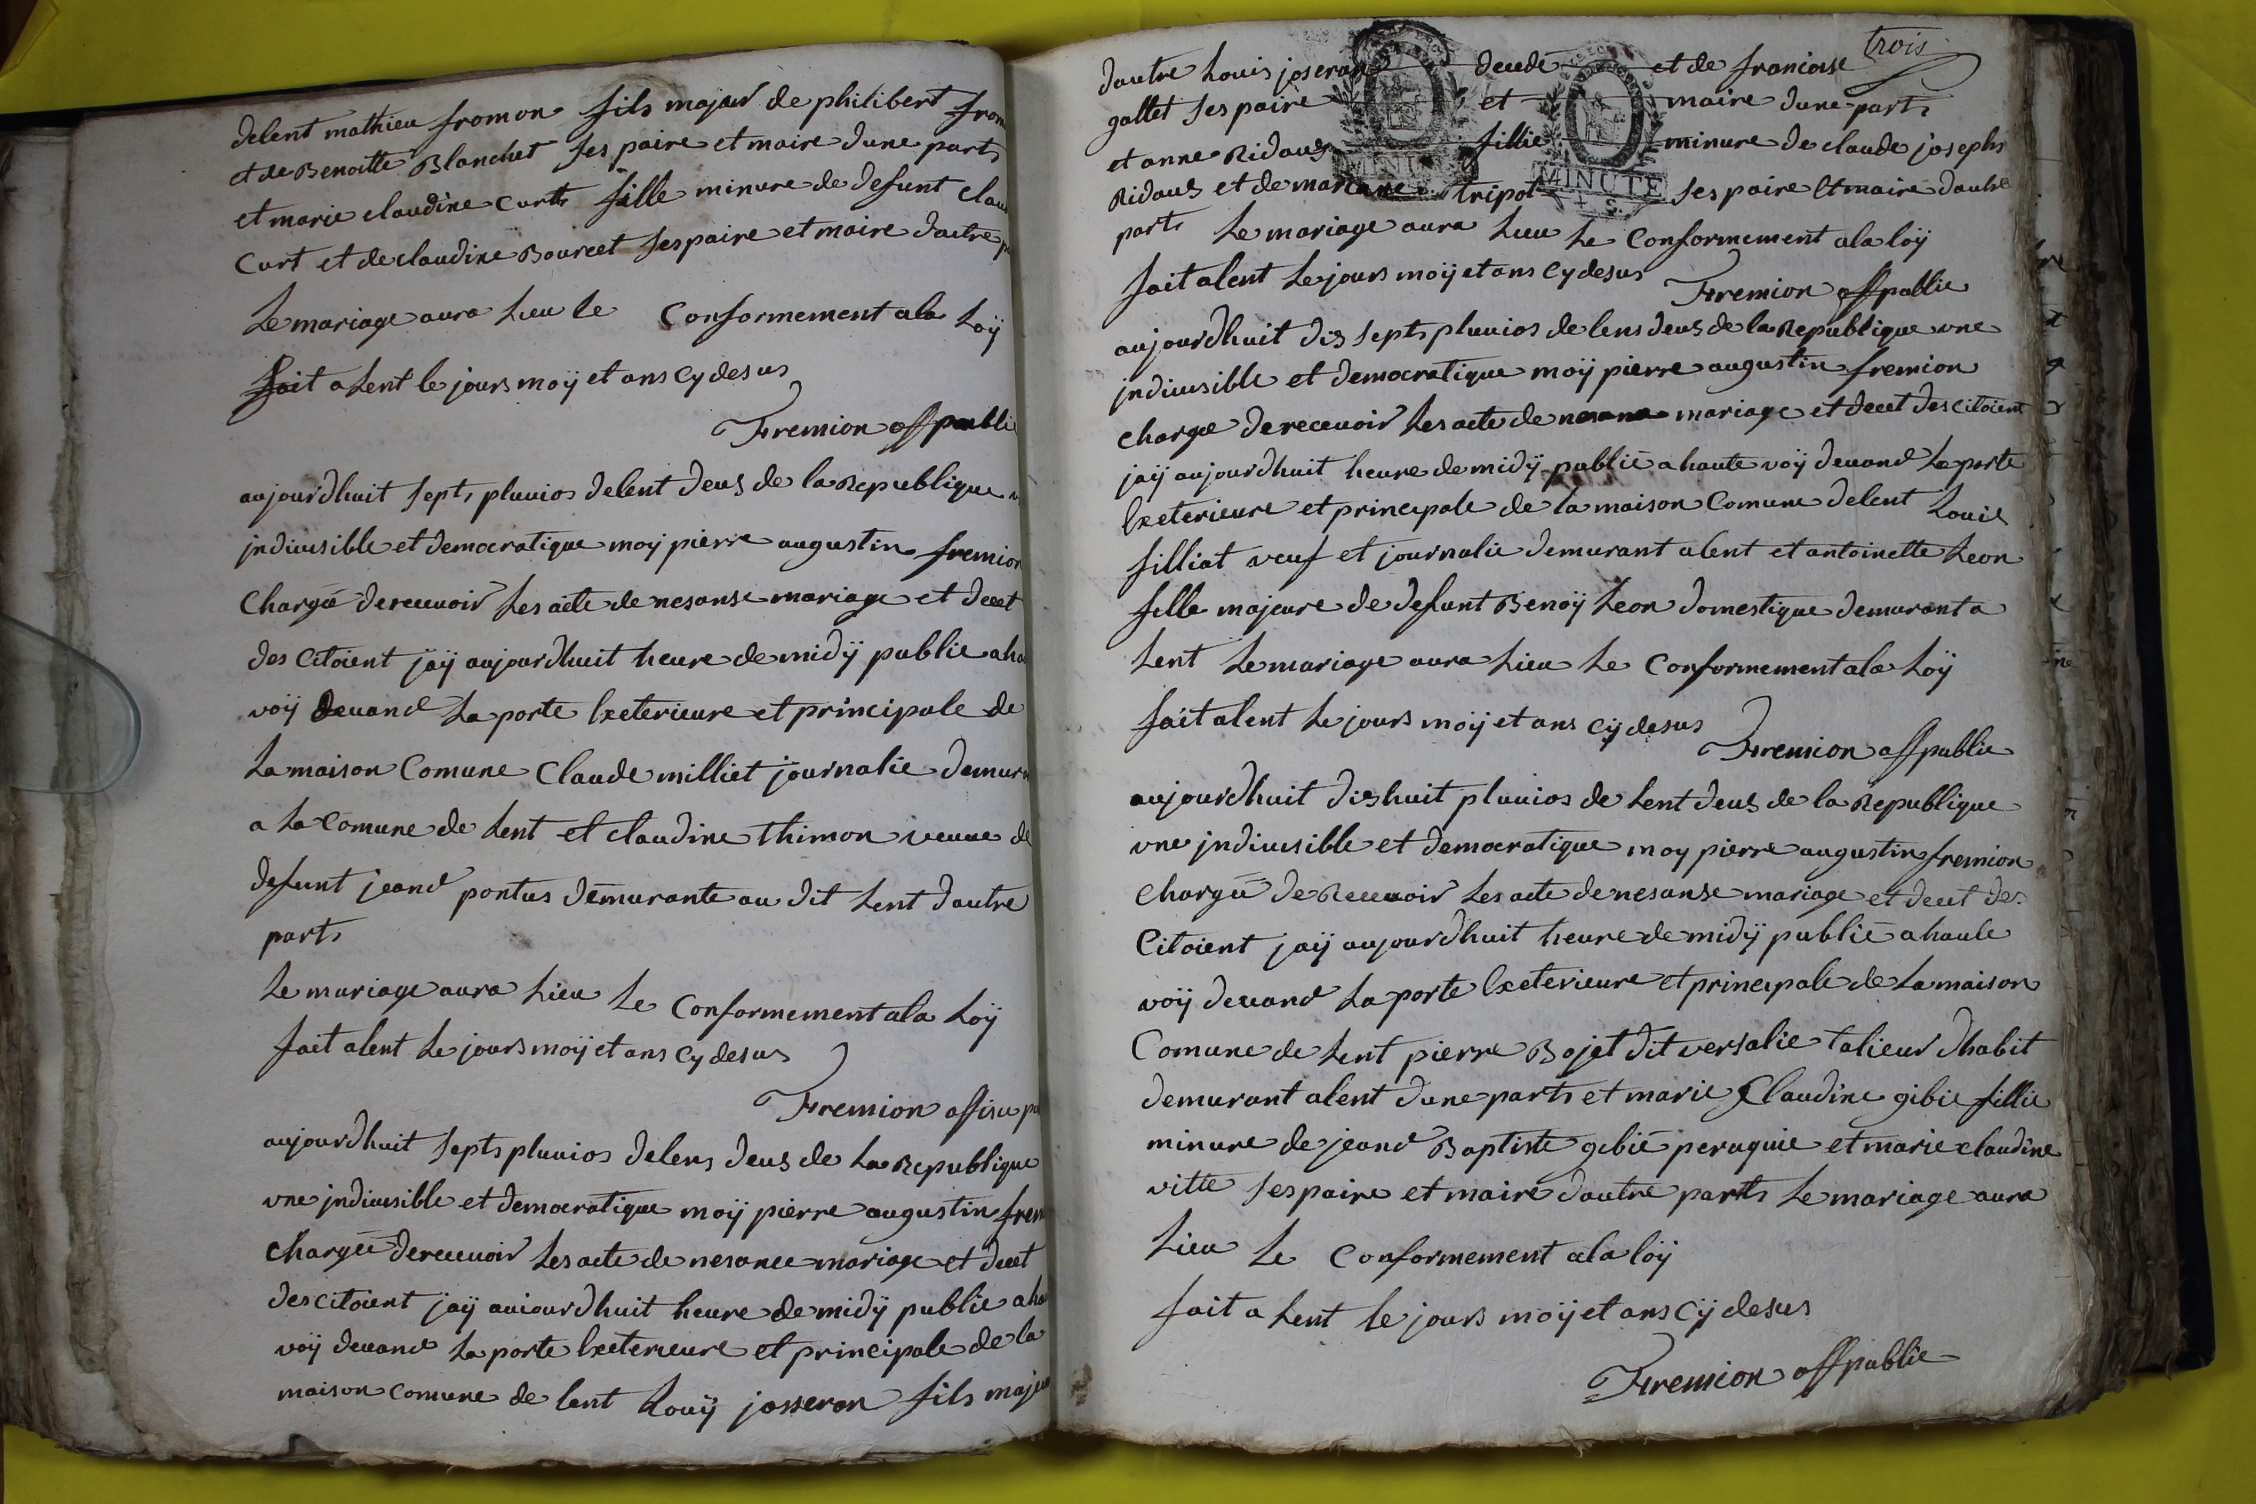 delent mathieu fromon fils majeur de philibert from
et de Benoitte Blanchet ses paire et maire dune parts
et marie claudine curt fille minure de defunt clau
Curt et de claudine Bourcet ses paire et maire dautre p
Le mariage aura Lieu le Conformement ala Loÿ
fait a Lent le jours moÿ et ans cy desus
Fremion off publi
aujourdhuit septs pluuios delent deus de la Republique
jndiuisible et democratique moÿ pierre augustin fremion
Chargé de receuoir Les acte de nesanse mariage et decet
des Citoient jaÿ aujourdhuit heure de midÿ publie a ha
voÿ deuand La porte Exeterieure et principale de
La maison Comune Claude milliet journalie demur
a La Comune de Lent et claudine thimon veuue de
defunt jeand pontus demurante au dit Lent dautre
parts
Le mariage aura Lieu Le Conformement ala Loÿ
fait alent Le jours moÿ et ans Cy desus
Fremion offisie pu
aujourdhuit septs pluuios delens deus de La Republique
vne jndiuisible et democratique moÿ pierre augustin frem
Chargé de receuoir Les acte de nesance mariage et decet
des citoient jaÿ auiourdhuit heure de midÿ publie a ha
voÿ deuand La porte Exeterieure et principale de la
maison Comune de Lent Louÿ josseron fils majeu
trois
dautre Louis joseran decedé et de francoise
gallet ses paire et maire dune parts
et anne Ridaus fillie minure de claude josephs
Ridaus et de mariane tripot ses paire et maire dautre
parts Le mariage aura Lieu Le Conformement ala Loÿ
fait alent Le jours moÿ et ans Cy desus
Fremion off publie
MINUTE
MINUTE
aujourdhuit dis septs pluuios de lens deus de la Republique vne
jndiuisible et democratique moÿ pierre augustin fremion
Chargé de receuoir Les acte de mariage et decet des Citoient
jaÿ aujourdhuit heure de midÿ publié a haute voÿ deuand La porte
Exeterieure et principale de la maison Comune delent Louis
filliat veuf et journalie demurant alent et antoinette Leon
fille majeure de defunt Benoÿ Leon domestique demurant a
Lent Le mariage aura Lieu Le Conformement ala Loÿ
fait alent Le jours moÿ et ans Cÿ desus
Fremion off publie
aujourdhuit dishuit pluuios de Lent deus de la Republique
vne jndiuisible et democratique moy pierre augustin fremion
Chargé de Receuoir Les acte de nesanse mariage et decet des
Citoient jaÿ aujourdhuit heure de midÿ publié a haule
voÿ deuand La porte Exeterieure et principale de La maison
Comune de Lent pierre Bojet dit versalie talieur dhabit
demurant alent dune parts et marie Claudine gibie fillie
minure de jeand Baptiste gibié peruquie et marie claudine
vitte ses paire et maire dautre parts Le mariage aura
Lieu Le Conformement ala loÿ
fait a Lent le jours moÿ et ans Cÿ desus
Fremion off publie